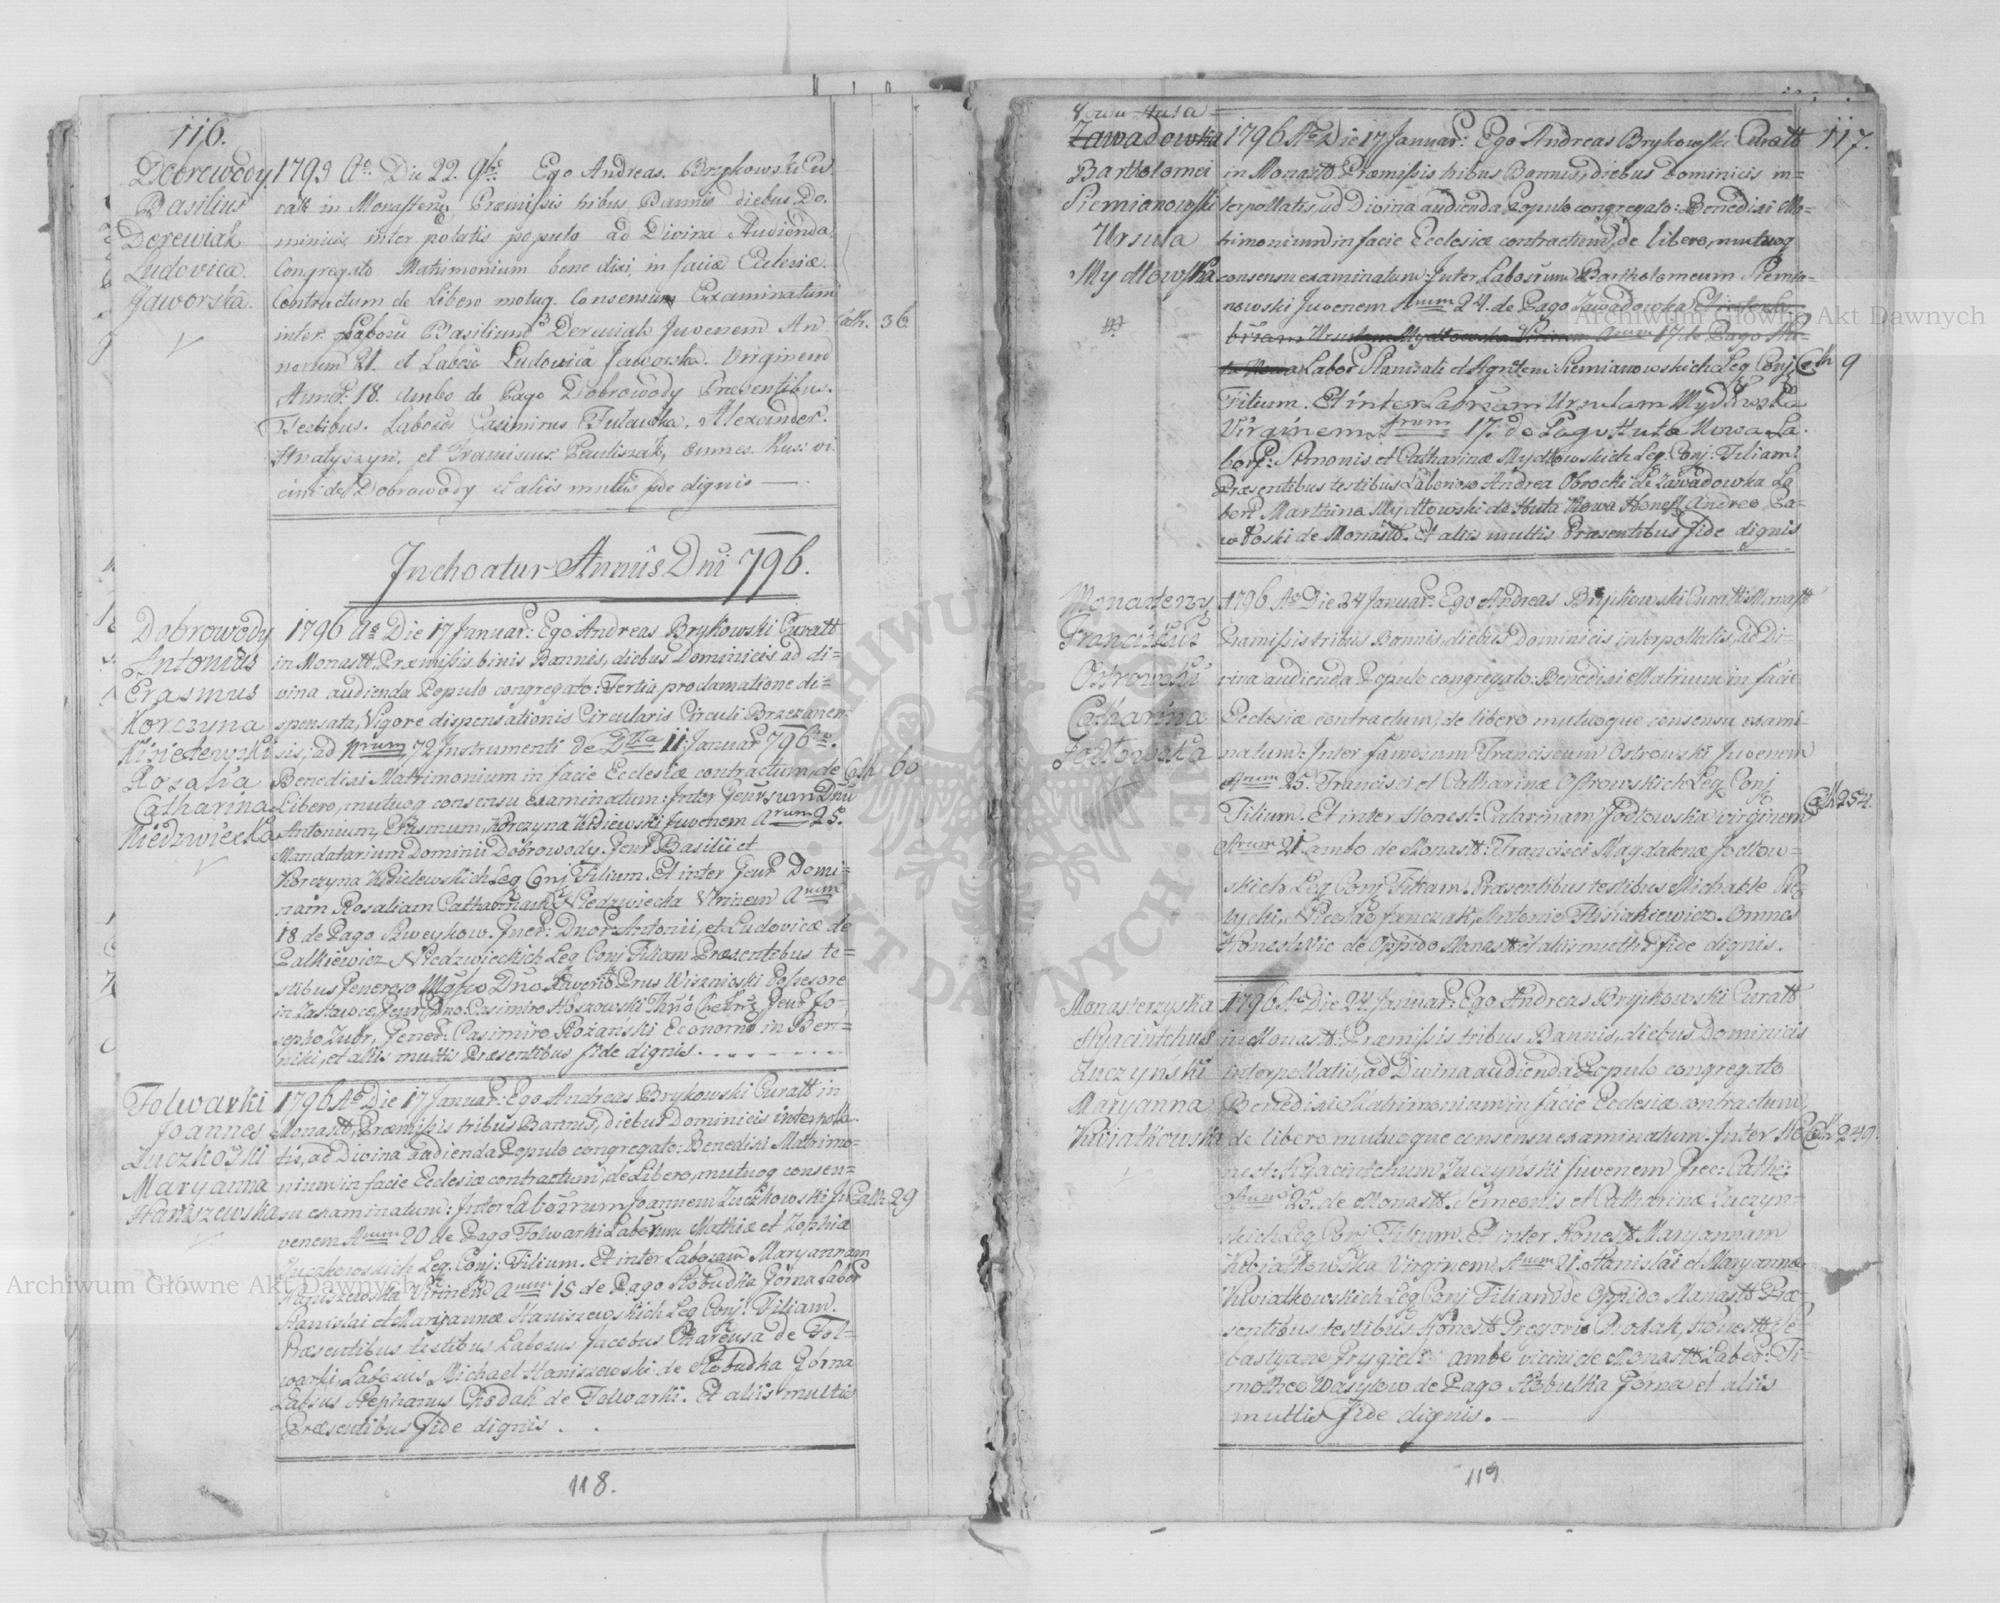 116.
Dobrowody
Basilius
Derewiak
Ludovica
Jaworska
1795 Ao. Die 22. 9bris Ego Andreas Brykowski Cu
ratt in Monasteriu Præmissis tribus Bannis diebus Do.
minicis inter polatis populo ad Divina Audienda
Congregato Matrimonium benedixi in faciæ Ecclesiæ
Contractum de Libero motuq. Consensum Examinatum
inter Laboru Basilium Derewiak Juvenem An
norum 21. et Laborio Ludovica Jaworska Virginem
Annor. 18. Ambo de Pago Dobrowody Præsentibus
Testibus. Laborios Casimirus Alexander
et Franciscus Pauliszak, Omnes Rus: vi
cini de Dobrowody et aliis multis fide dignis —
Cath. 36
Inchoatur Annus Dni 796.
Dobrowody
Antonius
Erasmus
Korczyna
Kisielewski
Rozalia
Catharina
Niedzwiecka
1796 Ao Die 17 Januar: Ego Andreas Brykowski Curatt
in Monastt. Præmissis binis Bannis, diebus Dominicis ad di=
vina audienda Populo congregato: Tertia proclamatione di=
spensata, Vigore dispensationis Circularis Circuli Brzezanen
sis, ad Nrum 72 Instrumenti de Dtta 11 Januar 796to.
Benedixi Matrimonium in facie Ecclesiæ contractum, de
Libero, mutuoq consensu examinatum: Inter Generosum Dnu
Antonium, Erasmum, Korczyna Kisiewski Juvenem Arum 25.
Mandatarium Dominii Dobrowody. Gener Basilii et
Korczyna Kisielewskich Leg Conj Filium. Et inter Gener Domi=
nam Rosaliam Catharinam Niedzwiecka Virinem Anum
18 de Pago Szweykow. Gner: Dnor Antonii, et Ludovicæ de
Palkiewicz Niedzwieckich Leg Conj Filiam Præsentibus te=
stibus Genereso Mgfco Dno Xaverio Prus Wisznioski Possesore
in Zastawce, Gener Dno. Casimiro Hoszowski
sepho Zubr, Gener: Casimiro Rożanski Economo in Ber=
niki, et aliis multis Præsentibus fide dignis.
Cath 60
Folwarki
Joannes
Zuczkoski
Maryanna
Haniszewska
1796 Ao Die 17 Januar: Ego Andreas Brykowski Curatt in
Monastt, Præmissis tribus Bannis, diebus Dominicis interpola
tis, ad Divina audienda Populo congregato: Benedixi Matrimo=
nium in facie Ecclesiæ contractum, de Libero, mutuoq consen=
su examinatum: Inter Laborrum Joannem Zuczkowski Ju
venem Anum 20 de Pago Folwarki Laborum Mathiæ et Zophiæ
Zuczkowskich Leg. Conj: Filium. Et inter Laboram Maryannam
Haniszewska Virinem Anum 18 de Pago Słobudka Gorna Labor
Stanislai et Maryannæ Haniszewskich Leg Conj: Filiam.
Præsentibus testibus Laborus Jacobus de Fol=
warki, Laborius Michael Haniszewski de Słobudka Gorna
Labsus Stephanus Chodak de Folwarki. Et aliis multis
Præsentibus fide dignis . .
Cath. 29
118.
117.
Nowa Huta
Zawadowka
Bartholomei
Siemianowski
Ursula
Mydłowska
1796 Ao Die 17 Januar: Ego Andreas Brykowski Curatt
in Monastt. Præmissis tribus Bannis, diebus Dominicis in=
terpollatis, ad Divina audienda Populo congregato: Benedixi Ma=
trimonium in facie Ecclesiæ contractum, de libero, mutuoq
consensu examinatum: Inter Laborium Bartholomeum Siemia=
nowski Juvenem Arum 24. de Pago Zawadowka Et inter La=
briam Ursulam Mydłowska Virinem Anum 17 de Pago Hu=
ta Nowa Labor Stanislai et Agnetem Siemianowskich Leg Conj
Filium. Et inter Labriam Ursulam Mydłowska
Virginem Arum 17. de Pago Huta Nowa La.
bors: Simonis et Catharinæ Mydłowskich Leg. Conj: Filiam.
Præsentibus testibus Laborioso Andrea Obrocki de Zawadowka La
bors Marthino Mydłowski de Huta Nowa Honest Andreo Pa=
włoski de Monastt. Et aliis multis Præsentibus fide dignis
Cth 9
Monasterz
Franciscus
Ostrowski
Catharina
Jodłowska
1796 Ao Die 24 Januar: Ego Andreas Brykowski Curatt Monastt
Præmissis tribus Bannis, diebus Dominicis interpollatis, ad Di=
vina audienda Populo congregato: Benedixi Matrium in facie
Ecclesiæ contractum, de libero mutuoque consensu exami=
natum: Inter Famosum Franciscum Ostrowski Juvenem
Anum 25. Francisci et Catharinæ Ostrowskich Leg Conj
Filium. Et inter Honest: Catarinam Jodłowska virginem
Arum 21 ambo de Monastt: Francisci Magdalenæ Jodłow=
skich Leg Conj Filiam. Præsentibus testibus Michaele
Nicolao Janczak, Antonio Omnes
Honesti Vic de Oppido Monastt et aliis multis fide dignis.
Cth 254.
Monasterzyska
Hyacintchus
Zuczyński
Maryanna
Kwiatkowska
1796 Ao Die 24 Januar: Ego Andreas Brykowski Curatt
in Monastt: Præmissis tribus Bannis, diebus Dominicis
Interpollatis, ad Divina audienda Populo congregato
Benedixi Matrimonium in facie Ecclesiæ contractum,
de libero mutuoque consensu examinatum: Inter Ho
nest: Hyacintchum Zuczyński Juvenem Grec: Cath:
Anum 25. de Monastt. Simeonis et Catharinæ Zuczyn=
skich Leg Conj Filium. Et inter Honest Maryannam
Kwiatkowska Virginem Arum 21. Stanislai et Maryannæ
Kwiatkowskich Leg Conj Filiam de Oppido Monastt Præ=
sentibus testibus Honestt Gregorio Chodak, Honestt Se
bastyano Frygiel: ambo vicini de Monastt Labor: Ti=
motheo Wasylow de Pago Słobutka Gorna et aliis
multis fide dignis. —
Cth 249.
119
Archiwum Główne Akt Dawnych
Archiwum Główne Akt Dawnych
ARCHIWUM GŁÓWNE AKT DAWNYCH